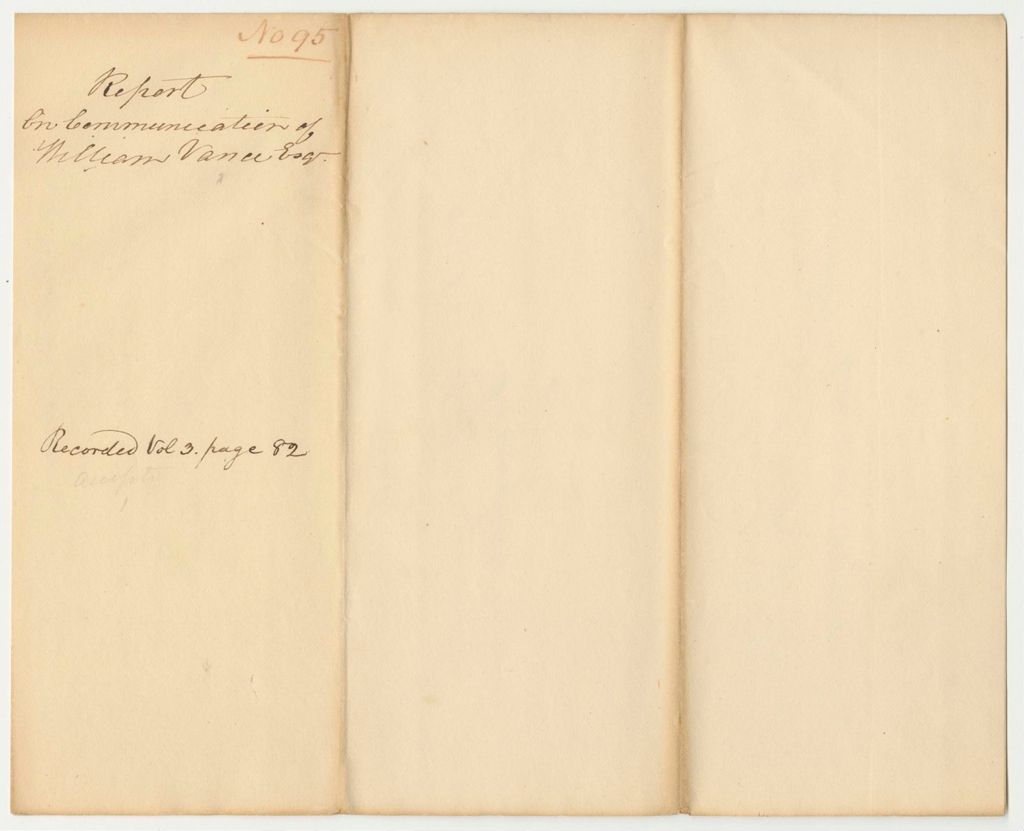 No 95
Report
On Communication of
William Vance Esqr.
Recorded Vol 3. page 82